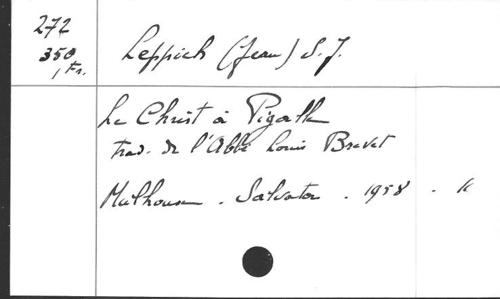 272
350
, Fr.
Leppich (Jean) S. J.
Le Christ à Pigalle
trad. de l'Abbé Louis Brevet
Mulhouse . Salvator . 1958 .